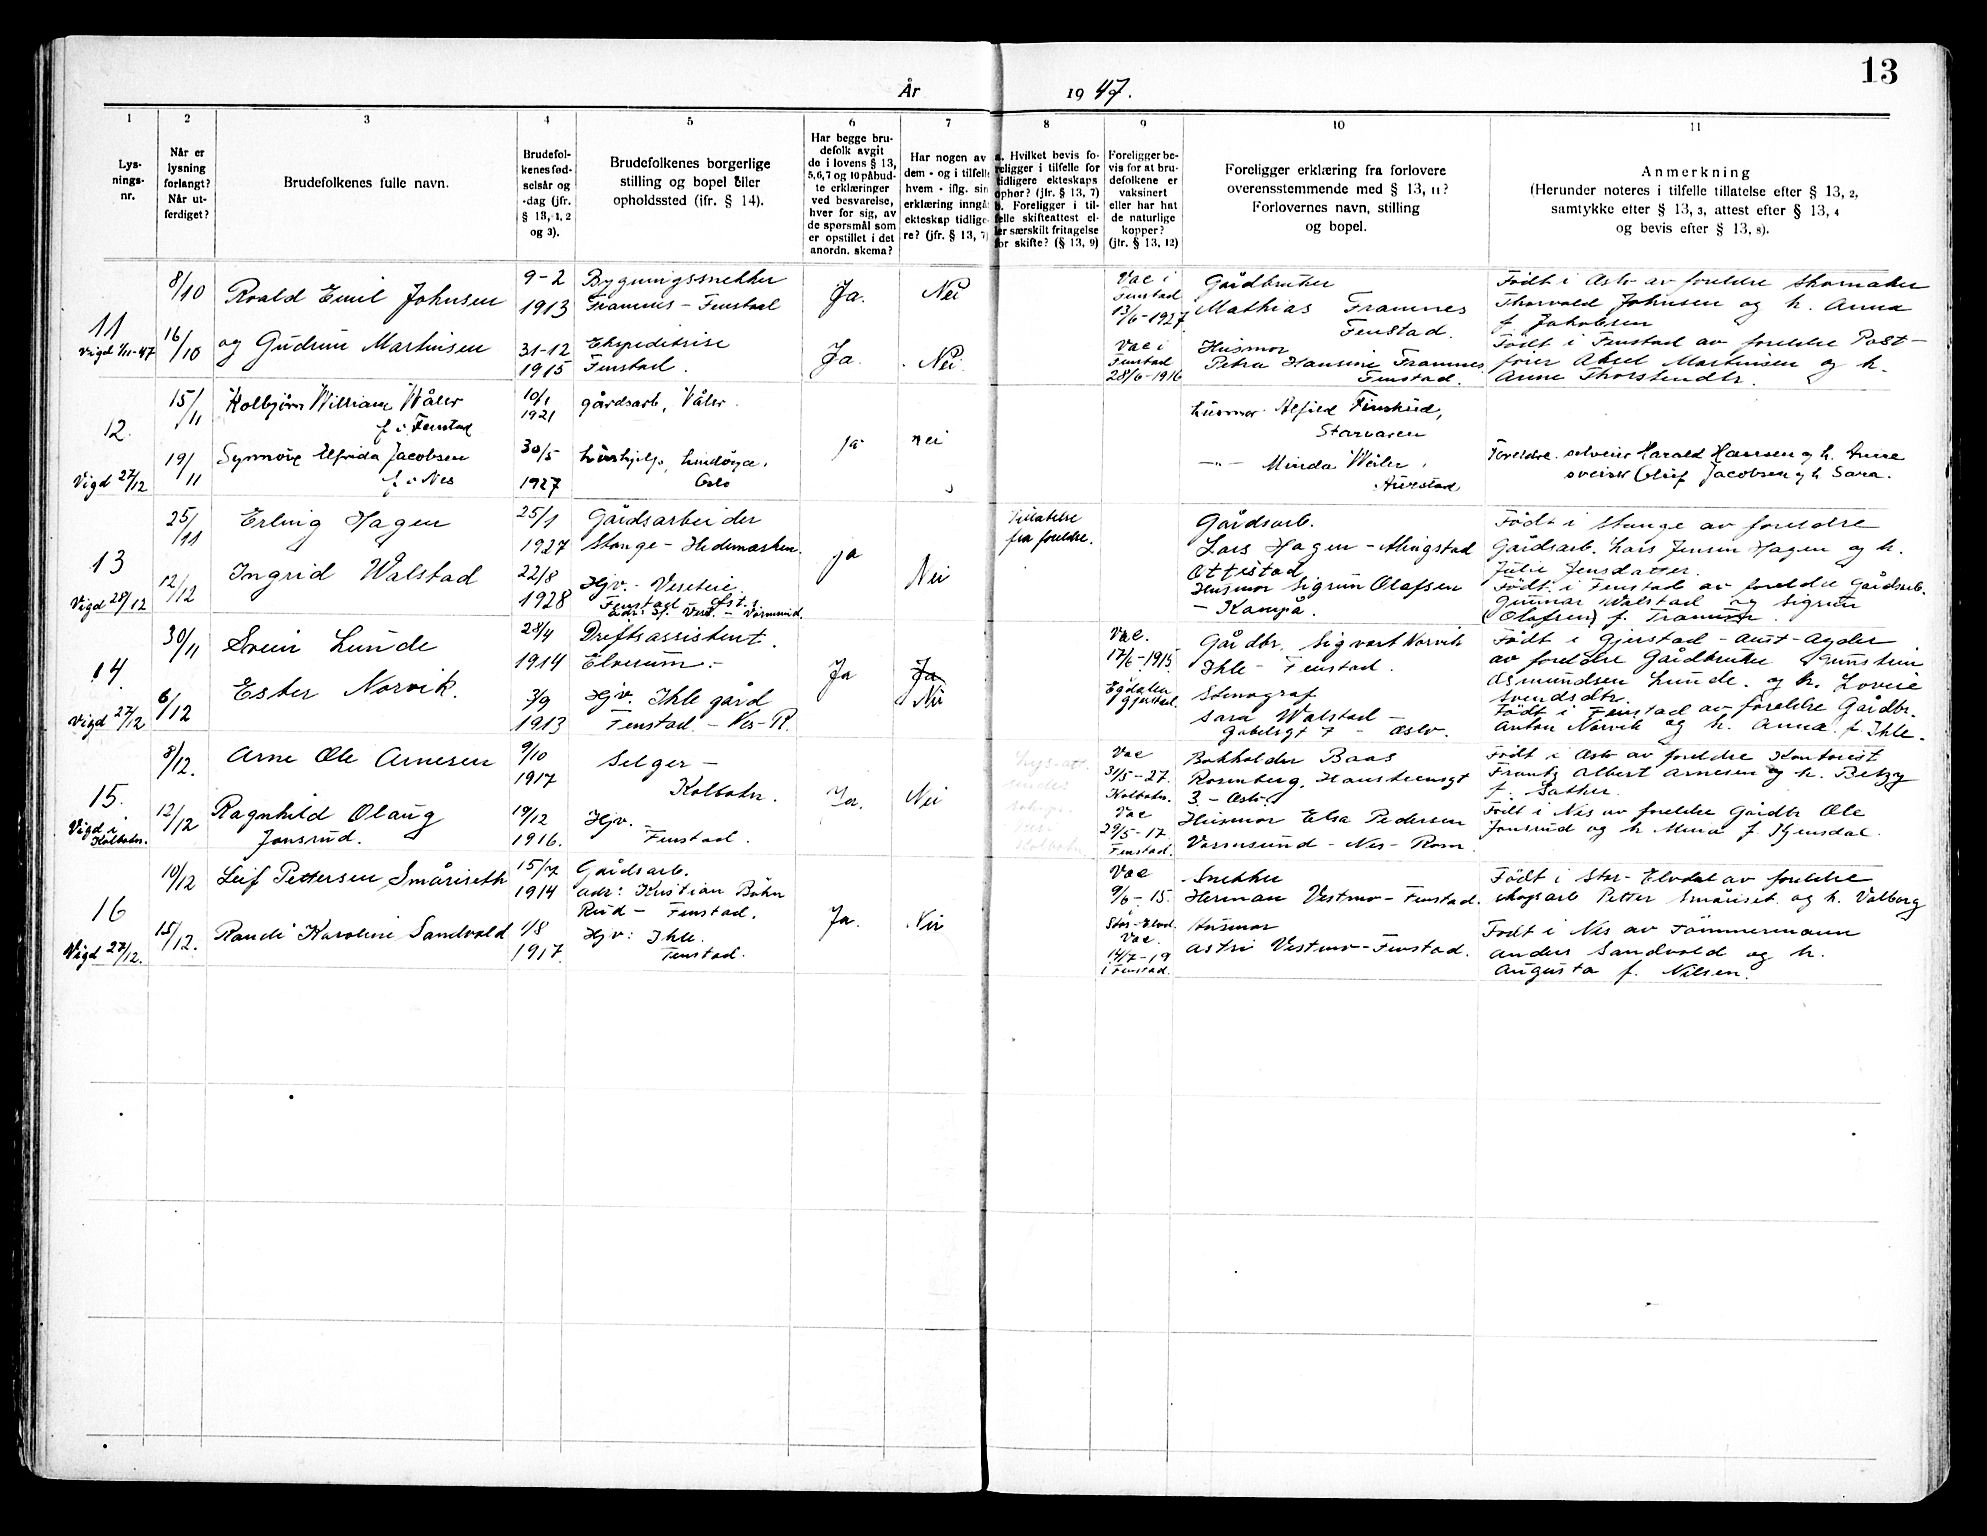 13
År 1947.
1
Lys-
nings-
nr.
2
Når er
lysning
forlangt?
Når ut-
ferdiget?
3
Brudefolkenes fulle navn.
4
Brudefol-
kenes fød-
selsår og
-dag (jfr.
§ 13, 1, 2
og 3).
5
Brudefolkenes borgerlige
stilling og bopel eller
opholdssted (ifr. § 14).
6
Har begge bru-
defolk avgit
de i lovens § 13,
5,6,7 og 10 påbud-
te erklæringer
ved besvarelse,
hver for sig, av
de spørsmål som
er opstillet i det
anordn. skema?
7
Har nogen av
dem - og i tilfelle
hvem - iflg. sin
erklæring inngå
ekteskap tidlige-
re? (jfr. § 13, 7)
8
a. Hvilket bevis fo-
religger i tilfelle for
tidligere ekteskaps
ophør? (jfr. § 13, 7)
b. Foreligger i til-
felle skifteattest el-
ler særskilt fritagelse
for skifte? (§ 13, 9)
9
Foreligger be-
vis for at bru-
defolkene er
vaksinert
eller har hat
de naturlige
kopper?
(jfr. § 13, 12)
10
Foreligger erklæring fra forlovere
overensstemmende med § 13, 11?
Forlovernes navn, stilling
og bopel.
11
Anmerkning
(Herunder noteres i tilfelle tillatelse efter § 13, 2,
samtykke efter § 13, 3, attest efter § 13, 4
og bevis efter § 13, 8).
11
Vigd 1/11-47
8/10
16/10
Roald Emil Johnsen
og Gudrun Martinsen
9-2
1913
31-12
1915
Bygningssnekker
Framnes - Fenstad
Ekspeditrise
Fenstad.
Ja.
Ja.
Nei
Nei.
Vac i
Fenstad
13/6-1927
Vac i
Fenstad
28/6-1916
Gårdbruker
Mathias Framnes
Fenstad.
Husmor
Petra Hansine Framnes
Fenstad.
Født i Oslo av foreldre skomaker
Thorvald Johnsen og h. Anna
f. Jakobsen
Født i Fenstad av foreldre Post-
fører Aksel Martinsen og h.
Anne Thorstendtr.
12.
Vigd 27/12
15/11
19/11
Kolbjørn William Våler
f. i Fenstad
Synnøve Elfrida Jacobsen
f. i Nes
10/1
1921
30/5
1927
gårdsarb, Våler.
hushjelp, Lindøya,
Oslo
ja
nei
husmor Alfild Finskud,
Starvasen
-"- Minda Våler,
Aurstad
Foreldre. selveier Harald Hansen og h. Anne
sveiser Oluf Jacobsen og h. Sara.
13
Vigd 28/12
25/11
12/12
Erling Hagen
Ingrid Walstad
25/1
1927
22/8
1928
Gårdsarbeider
Stange - Hedemarken.
Hjv. - Veseteie
Fenstad Øst.
ja
Nei
Tillatelse
fra foreldre.
Gårdsarb.
Lars Hagen - Alingstad
Ottestad
Husmor Sigrun Olafsen
- Kampå.
Født i Stange av foreldre
Gårdsarb. Lars Jensen Hagen og h.
Julie Jensdatter.
Født i Fenstad av foreldre Gårdsarb.
Gunnar Walstad og Sigrun
(Olafsen) f.
14.
Vigd 27/12
30/11
6/12
Svein Lunde
Ester Norvik.
28/4
1914
3/9
1913
Driftsassistent.
Elverum.-
Hjv. Ihle gård
Fenstad - Nes-R.
Ja
Ja
Nei
Vac.
17/6-1915
Egdalen
Gjerstad.
Gårdbr. Sigvart Norvik
Ihle - Fenstad.
Stenograf
Sara Walstad -
Gabelsgt 7 - Oslo.
Født i Gjerstad - Aust-Agder
av foreldre Gårdbruker Gunstein
Osmundsen Lunde. og h. Lovise
Svendsdtr.
Født i Fenstad av foreldre Gårdbr.
Anton Norvik og h. Anna f. Ihle.
15.
Vigd i
Kolbotn.
8/12.
12/12
Arne Ole Arnesen
Ragnhild Olaug
Jonsrud.
9/10
1917
19/12
1916.
Selger -
Kolbotn.
Hjv. -
Fenstad.
Ja.
Nei
Vac
31/5-27.
Kolbotn.
Vac
29/5-17
Fenstad.
Bokholder Baas
Rosenberg, Hansteensgt
3. - Oslo.
Husmor Elsa Pedersen
Vormsund - Nes - Rom.
Født i Oslo av foreldre Kontorist
Frantz Albert Arnesen og h. Betzy
f. Sæther.
Født i Nes av foreldre Gårdbr Ole
Jonsrud og h. Mina f. Hjensdal.
16
Vigd 27/12.
10/12
15/12.
Leif Pettersen Småriseth
Randi Karoline Sandvold
15/7
1914
1/8
1917.
Gårdsarb.
adr: Kristian Bøhn
Rud - Fenstad.
Hjv: Ihle.
Fenstad.
Ja.
Nei
Vac
9/6-15.
Stor-Elvd.
Vac.
14/7-19
i Fenstad.
Snekker
Herman Vestmo - Fenstad.
Husmor
Astri Vestmo - Fenstad.
Født i Stor-Elvdal av foreldre
skogsarb Petter Småriset. og h. Valborg
Født i Nes av Tømmermann
Anders Sandvold og h.
Augusta f. Nilsen.